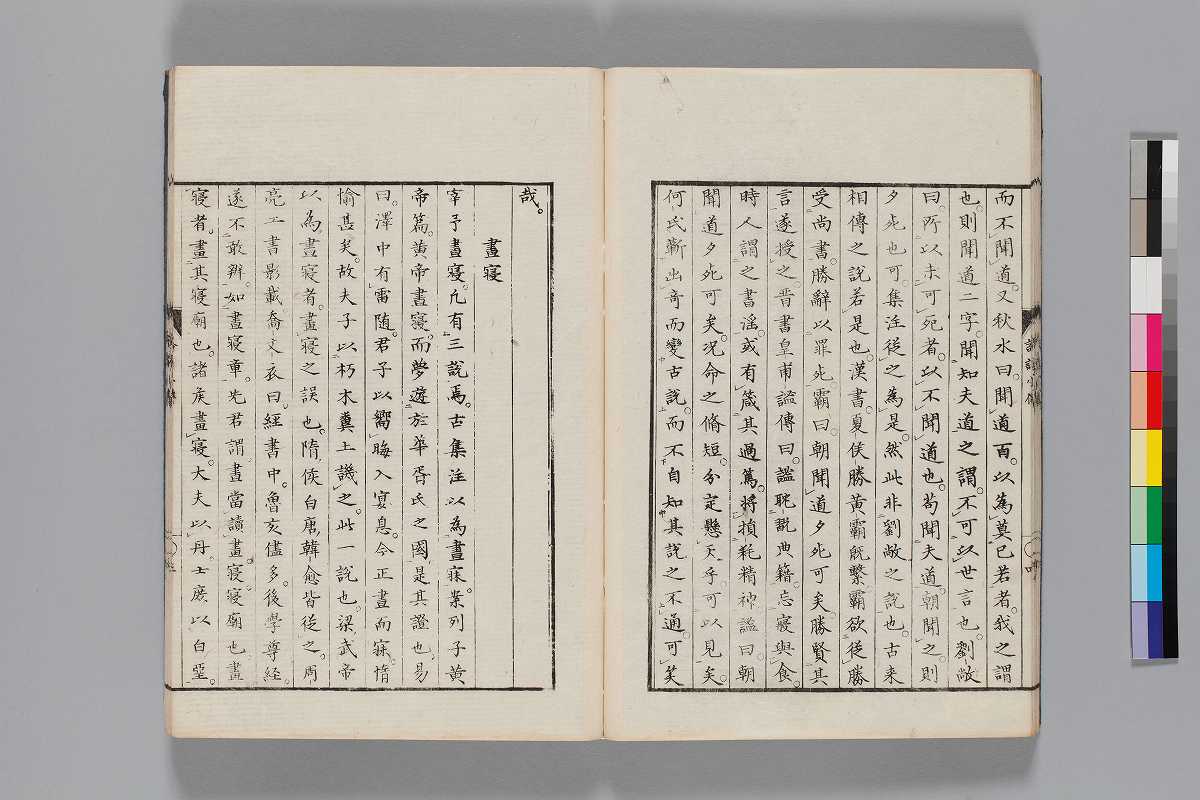 而不聞道。又秋水曰。聞道百。以為莫己若者。我之謂
也。則聞道二字。聞知夫道之謂。不可以世言也。劉敞
曰。所以未可死者。以不聞道也。苟聞夫道。朝聞之。則
夕死也可。集注從之為是。然此非劉敞之說也。古来
相傳之說若是也。漢書。夏侯勝黃霸既繫。霸欲從勝
受尚書。勝辭以罪死。霸曰。朝聞道夕死可矣。勝賢其
言遂授之。晋書皇甫謐傳曰。謐耽翫典籍。忘寝與食。
時人謂之書淫。或有箴其過篤。將損耗精神。謐曰。朝
聞道夕死可矣。况命之脩短。分定懸天乎。可以見矣。
何氏嶄出奇而變古說。而不自知其說之不通。可笑
哉。
晝寝
宰予晝寝。凡有三說焉。古集注以為晝寐。案列子黃
帝篇。黃帝晝寝。而夢遊於華胥氏之國。是其證也。易
曰。澤中有雷随。君子以嚮晦入宴息。今正晝而寐。惰
偷甚矣。故夫子以朽木糞土譏之。此一說也。梁武帝
以為畫寝者。晝寝之誤也。隋侯白唐韓愈皆從之。周
亮工書影載喬文衣曰。經書中。魯亥儘多。後學尊經。
遂不敢辨。如晝寝章。先君謂晝當讀畫。寝。寝廟也。畫
寝者。畫其寝廟也。諸矦畫寝。大夫以丹。士庶以白堊。